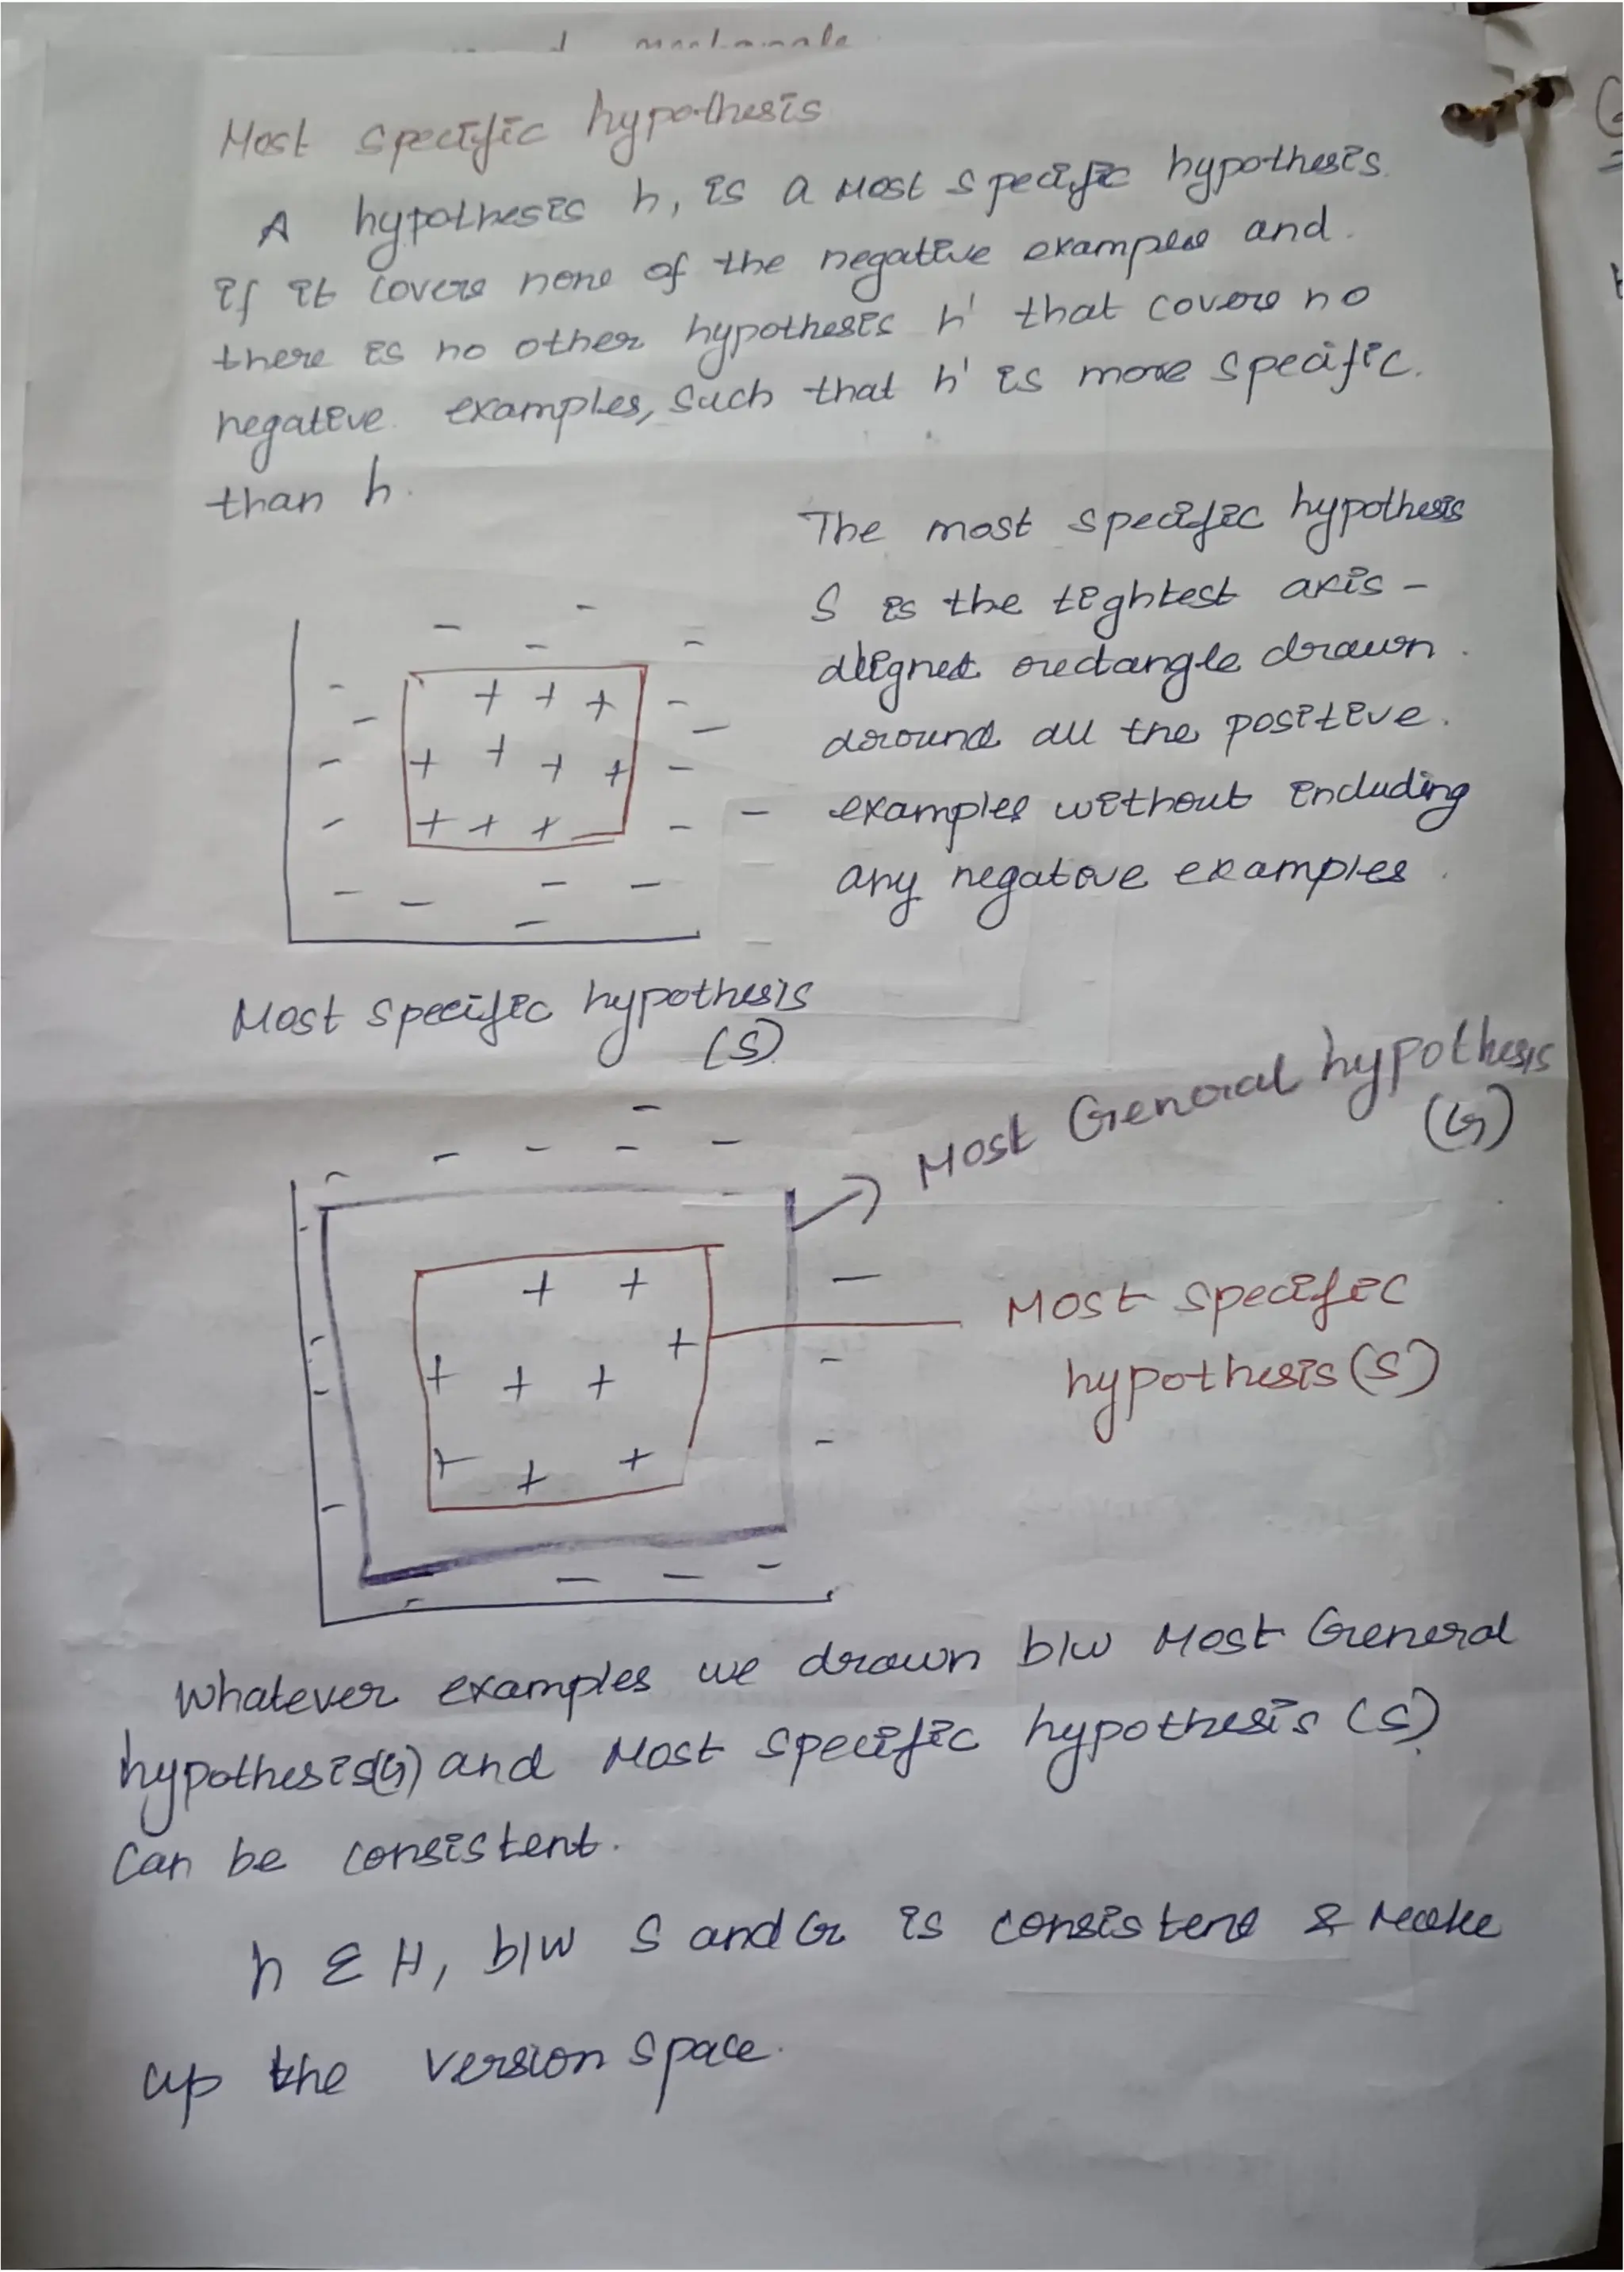 Most specific hypothesis
A hypothesis h, is a Most specific hypothesis.
if it covers none of the negative examples and.
there is no other hypothesis h' that covers no
negative. examples, such that h' is more specific.
than h.
The most specific hypothesis
S is the tightest axis-
aligned rectangle drawn.
around all the positive.
examples without including
any negative examples.
Most specific hypothesis
(S)
Most General hypothesis
(G)
Most specific
hypothesis (S)
Whatever examples we drawn b/w Most General
hypothesis(G) and Most specific hypothesis (S)
Can be consistent.
h ∈ H, b/w S and G is consistent & Make
up the version space.